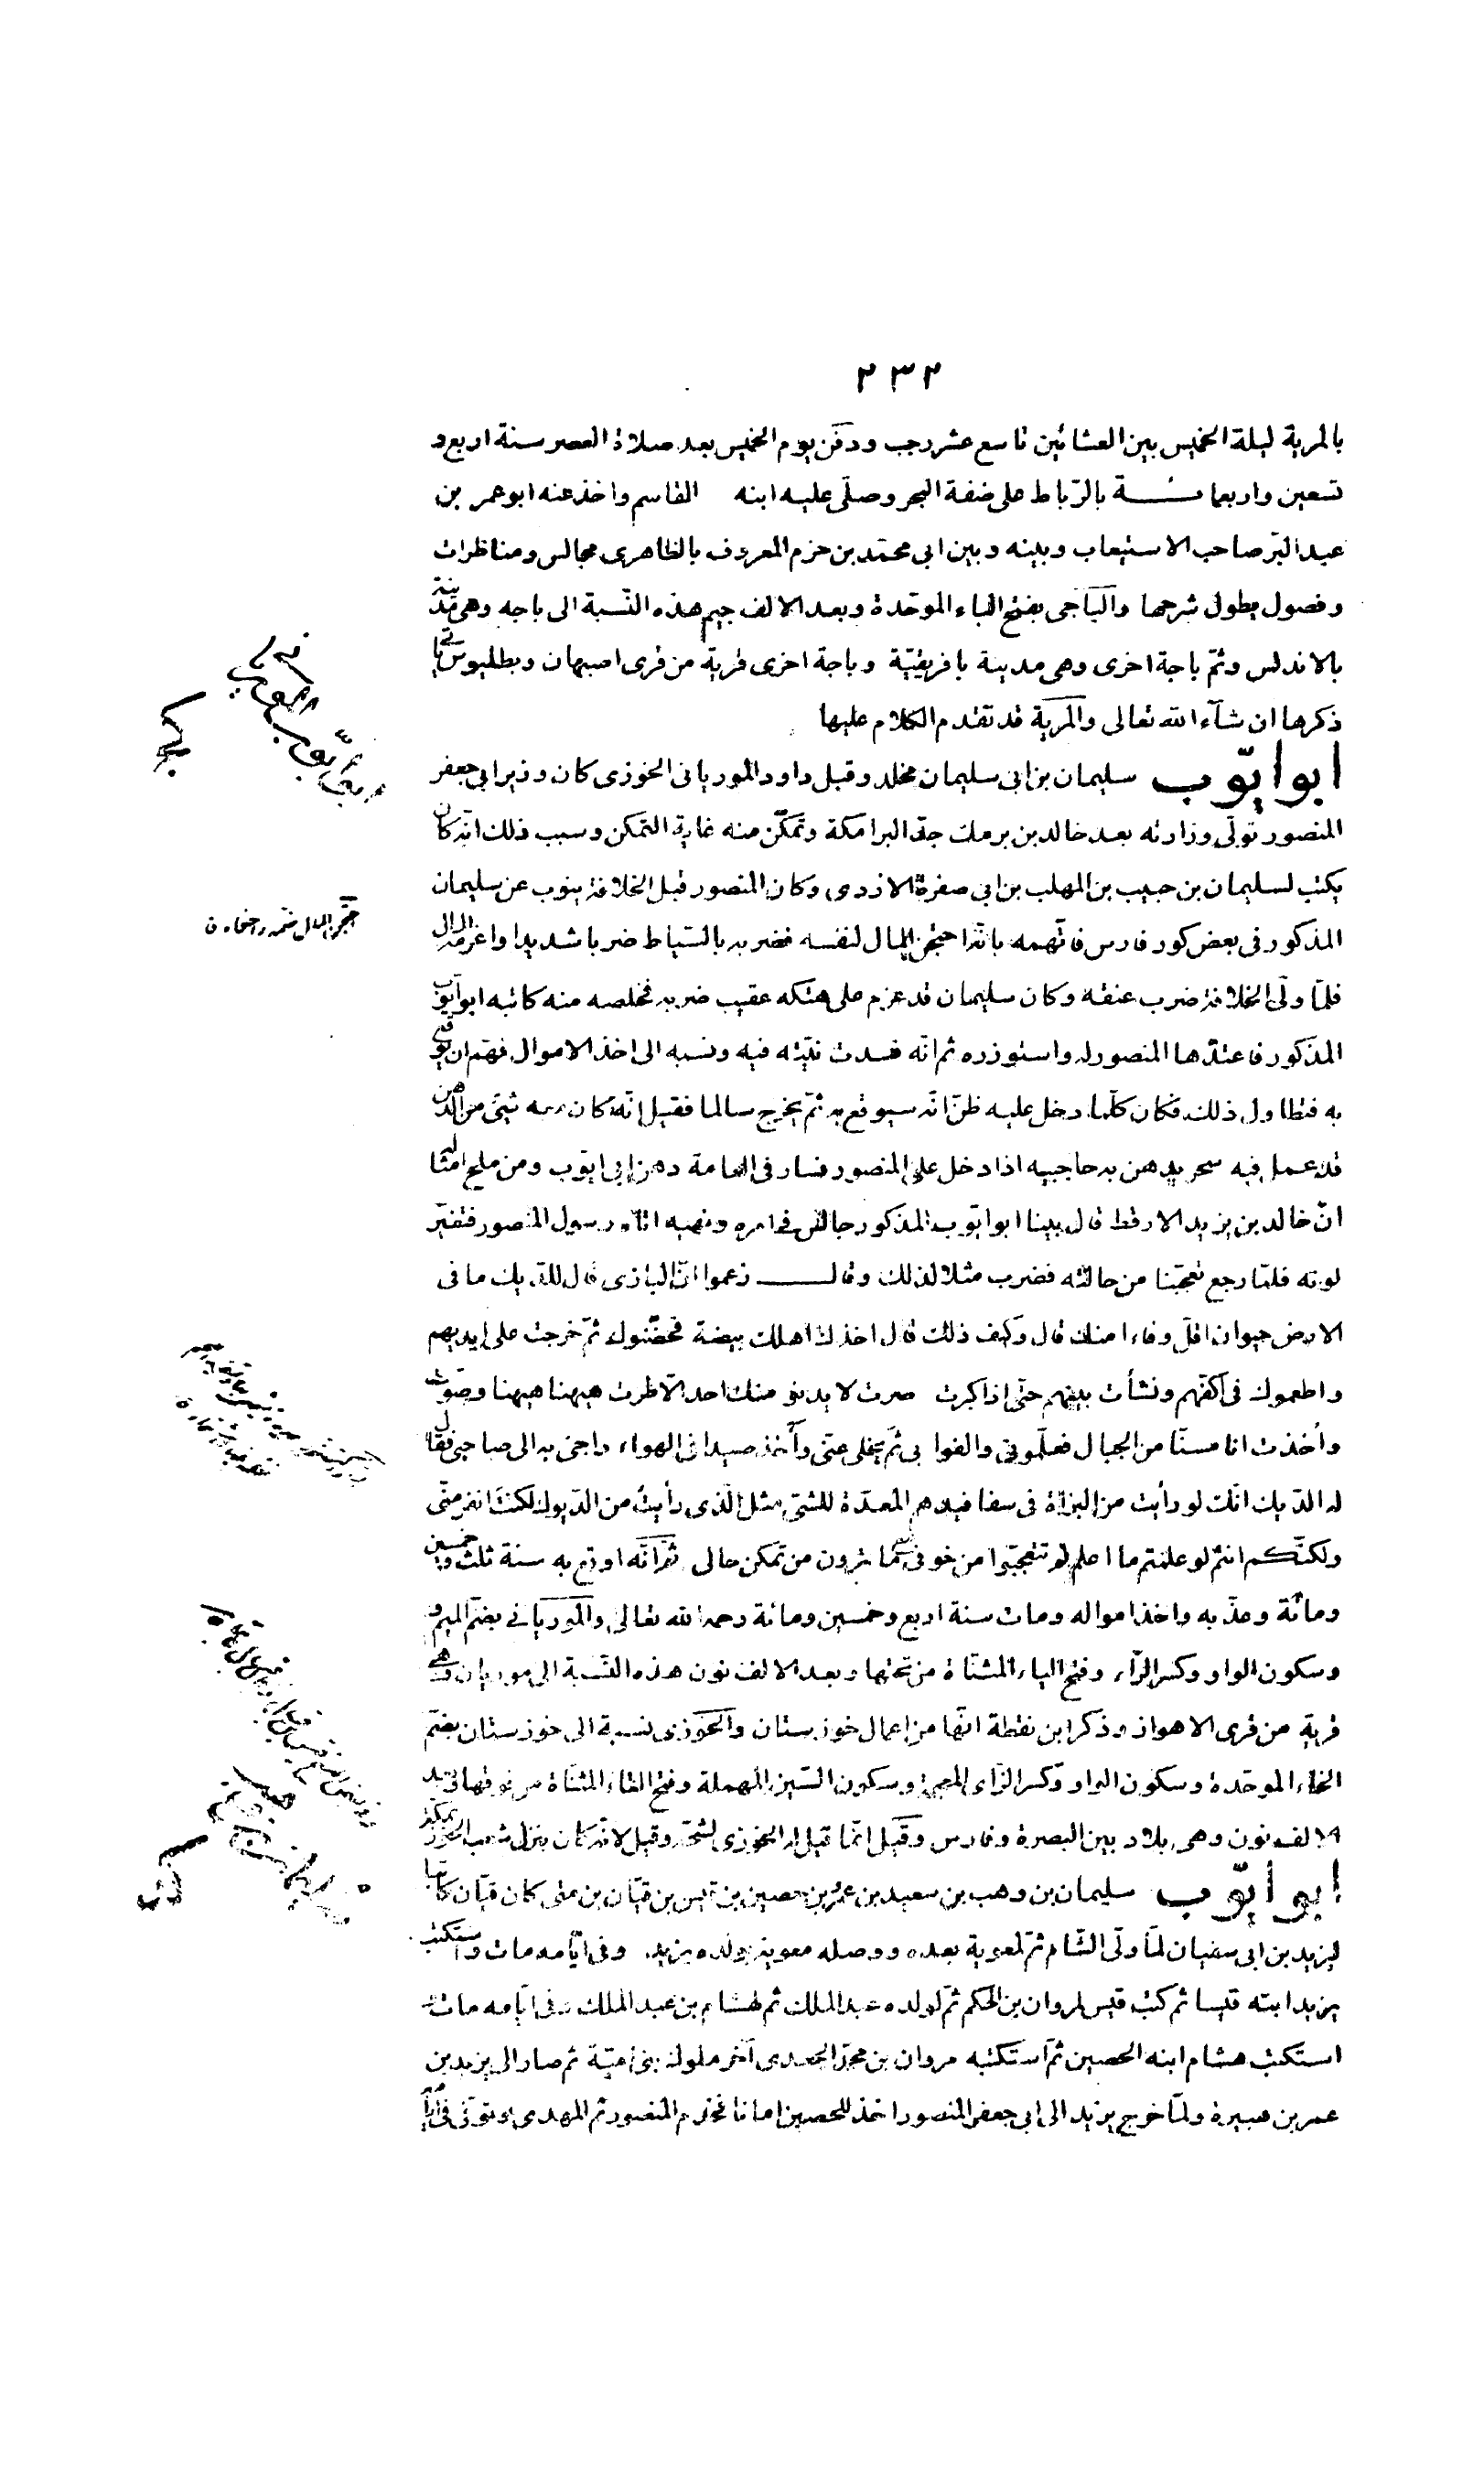 ٢٣٢
بالمرية ليلة الخميس بين العشائين تاسع عشر رجب ودفن يوم الخميس بعد صلاة العصر سنة اربع و
تسعين واربعمائة بالرّباط على ضفة البحر وصلّى عليه ابنه القاسم واخذ عنه ابو عمر بن
عبد البرّ صاحب الاستيعاب وبينه وبين ابى محمّد بن حزم المعروف بالظاهرى مجالس ومناظرات
وفصول يطول شرحها والباجى بفتح الباء الموحّدة وبعد الالف جيم هذه النّسبة الى باجه وهى مدينة
بالاندلس وثمّ باجة اخرى وهى مدينة بافريقيّة وباجة اخرى قرية من قرى اصبهان وبطليوس ياتى
ذكرها ان شآء الله تعالى والمرية قد تقدم الكلام عليها
ابو ايّوب سليمان بن ابى سليمان مخلد وقيل داود الموريانى الخوزى كان وزير ابى جعفر
المنصور تولّى وزارته بعد خالد بن برمك جدّ البرامكة وتمكّن منه غاية التمكّن وسبب ذلك انّه كان
يكتب لسليمان بن حبيب بن المهلب بن ابى صفرة الازدى وكان المنصور قبل الخلافة ينوب عن سليمان
المذكور فى بعض كور فارس فاتّهمه بانّه احتجن المال لنفسه فضربه بالسّياط ضربا شديدا واغرمه المال
فلمّا ولّى الخلافة ضرب عنقه وكان سليمان قد عزم على هتكه عقيب ضربه فخلصه منه كاتبه ابو ايّوب
المذكور فاعتدّها المنصور له واستوزره ثم انّه فسدت نيّته فيه ونسبه الى اخذ الاموال فهمّ ان يوقع
به فتطاول ذلك فكان كلّما دخل عليه ظنّ انّه سيوقع به ثمّ يخرج سالما فقيل انّه كان معه شيئ من الدهن
قد عمل فيه سحر يدهن به حاجبيه اذا دخل على المنصور فسار فى العامة دهن ابى ايّوب ومن مليح امثاله
انّ خالد بن يزيد الارقط قال بينا ابو ايّوب المذكور جالس فى امره ونهيه اتاه رسول المنصور فتغيّر
لونه فلمّا رجع تعجّبنا من حالته فضرب مثلا لذلك وقال زعموا انّ البازى قال للدّيك ما فى
الارض حيوان اقلّ وفاء منك قال وكيف ذلك قال اخذك اهلك بيضة فحضّنوك ثمّ خرجت على ايديهم
واطعموك فى اكفّهم ونشأت بينهم حتّى اذا كبرت صرت لا يدنو منك احد الّا طرت هيهنا هيهنا وصوّت
وأخذت انا مسنّا من الجبال فعلّمونى والفوا بى ثمّ يخلى عنّى وآخذ صيدا فى الهواء واجئ به الى صاحبى فقال
له الدّيك انّك لو رأيت من البزاة فى سفافيدهم المعدّة للشىّ مثل الّذى رأيت من الدّيوك لكنت انفر منّى
ولكنّكم انتم لو علمتم ما اعلم لم تتعجّبوا من خوفى مع ما ترون من تمكن حالى ثمّ انّه اوقع به سنة ثلث وخمسين
ومائة وعذّبه واخذ امواله ومات سنة اربع وخمسين ومائة رحمه الله تعالى والموريانى بضمّ الميم و
وسكون الواو وكسر الرّاء وفتح الياء المثنّاة من تحتها وبعد الالف نون هذه النّسبة الى موريان وهى
قرية من قرى الاهواز وذكر ابن نقطة انّها من اعمال خوزستان والخوزى نسبة الى خوزستان بضمّ
الخاء الموحّدة وسكون الواو وكسر الزّاى المعجمة وسكون السّين المهملة وفتح التاء المثنّاة من فوقها وبعد
الالف نون وهى بلاد بين البصرة وفارس وقيل انّما قيل له الخوزى لشحّه وقيل لانّه كان ينزل شعب الخوز بمكّة
ابو أيّوب سليمان بن وهب بن سعيد بن عمرو بن حصين بن قيس بن قبّان بن متى كان قبّان كاتبا
ليزيد بن ابى سفيان لمّا ولّى الشّام ثمّ لمعوية بعده ووصله معوية بولده يزيد وفى ايّامه مات واستكتب
يزيد ابنه قيسا ثمّ كتب قيس لمروان بن الحكم ثمّ لولده عبد الملك ثم لهشام بن عبد الملك وفى ايّامه مات
استكتب هشام ابنه الحصين ثمّ استكتبه مروان بن محمّد الجعدى آخر ملوك بنى اميّة ثم صار الى يزيد بن
عمر بن هبيرة ولمّا خرج يزيد الى ابى جعفر المنصور اخذ للحصين امانا فخدم المنصور ثم المهدى وتوفّى فى ايّام
ابو ايّوب الموريانى
احتجن المال ضمّه واحتواه